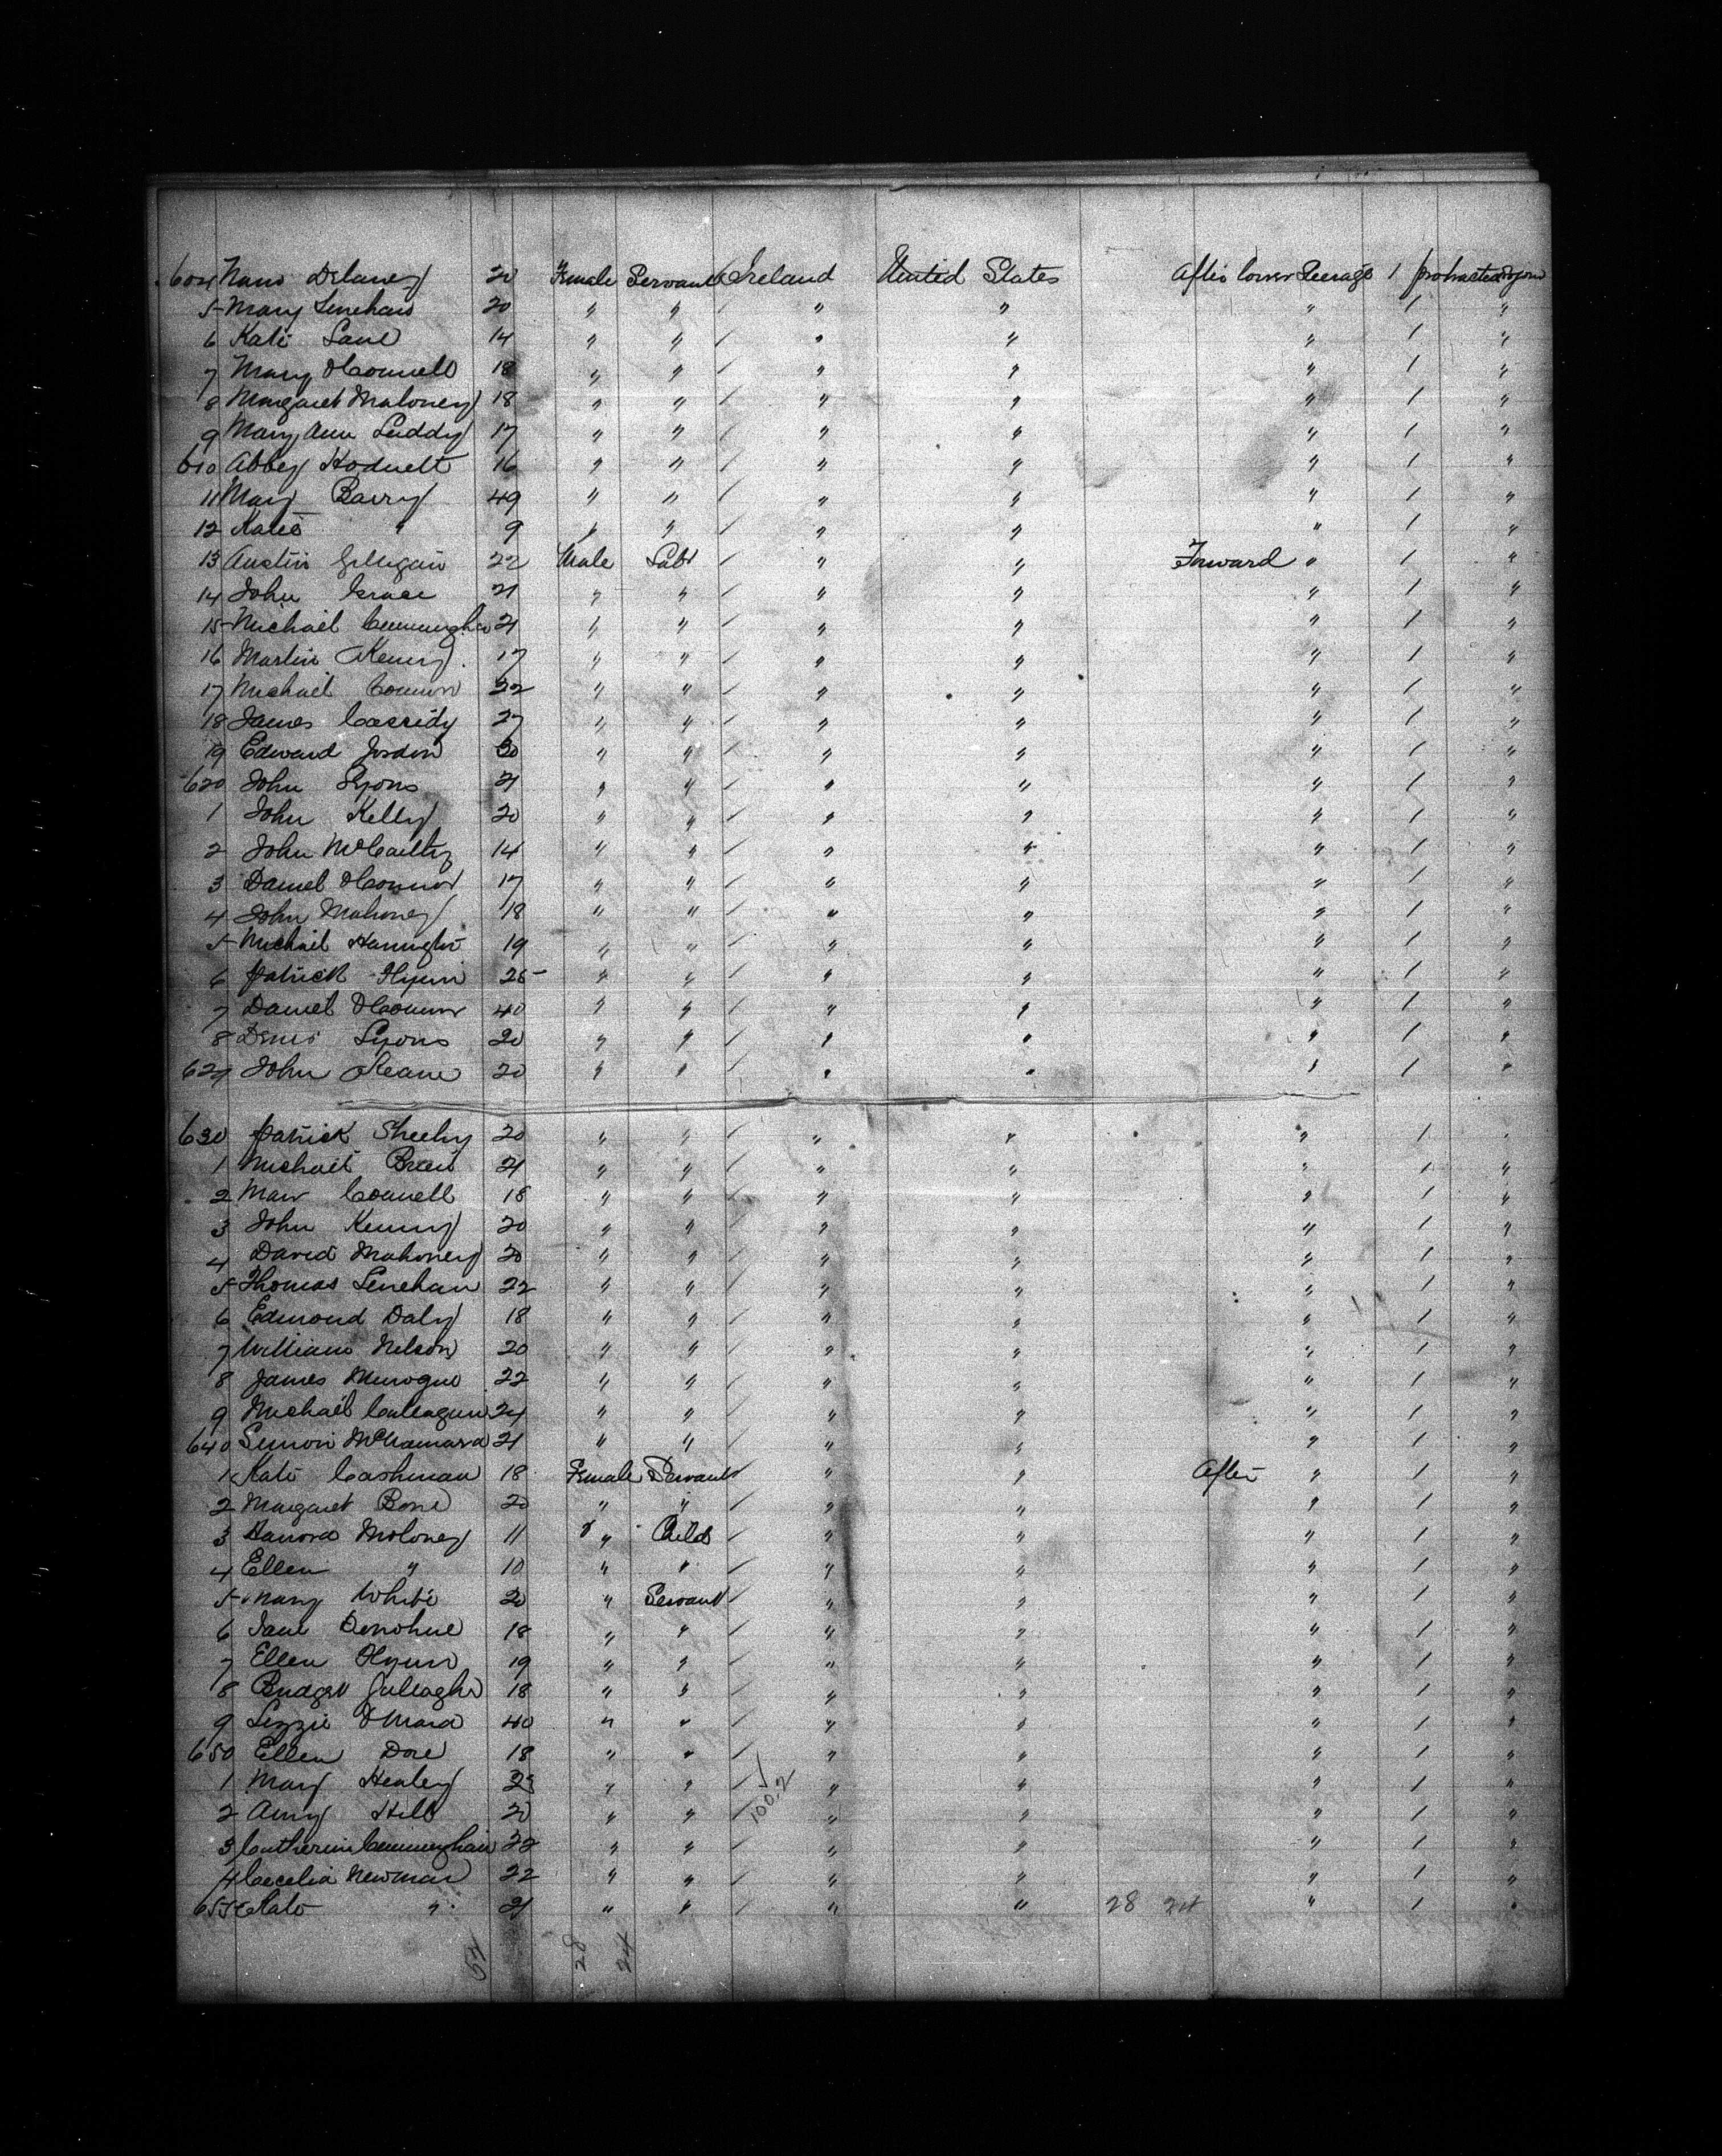 604 Nano Delaney 20 Female Servant / Ireland United States After lower Steerage 1 protracted sojourn
5 Mary Linehan 20 " " / " " " 1 "
6 Kate Lane 14 " " / " " " 1 "
7 Mary O'Connell 18 " " / " " " 1 "
8 Margaret Maloney 18 " " / " " " 1 "
9 Mary Ann Luddy 17 " " / " " " 1 "
610 Abbey Hodnett 16 " " / " " " 1 "
11 Mary Barry 49 " " / " " " 1 "
12 Kate " 9 " " / " " " 1 "
13 Austin Gilligan 22 Male Labr / " " Forward " 1 "
14 John Grace 21 " " / " " " 1 "
15 Michael Cunningham 21 " " / " " " 1 "
16 Martin Kenny 17 " " / " " " 1 "
17 Michael Connor 22 " " / " " " 1 "
18 James Cassidy 27 " " / " " " 1 "
19 Edward Jordon 30 " " / " " " 1 "
620 John Lyons 21 " " / " " " 1 "
1 John Kelly 20 " " / " " " 1 "
2 John McCarthy 14 " " / " " " 1 "
3 Daniel O'Connor 17 " " / " " " 1 "
4 John Mahoney 18 " " / " " " 1 "
5 Michael Harrington 19 " " / " " " 1 "
6 Patrick Flynn 25 " " / " " " 1 "
7 Daniel O'Connor 40 " " / " " " 1 "
8 Denis Lyons 20 " " / " " " 1 "
629 John Keane 20 " " / " " " 1 "
630 Patrick Sheehy 20 " " / " " " 1 "
1 Michael 21 " " / " " " 1 "
2 Connell 18 " " / " " " 1 "
3 John Kenny 20 " " / " " " 1 "
4 David Mahoney 20 " " / " " " 1 "
5 Thomas Linehan 22 " " / " " " 1 "
6 Edmond Daly 18 " " / " " " 1 "
7 William Nelson 20 " " / " " " 1 "
8 James 22 " " / " " " 1 "
9 Michael 24 " " / " " " 1 "
640 Simon McNamara 21 " " / " " " 1 "
1 Kate Cashman 18 Female Servant / " " After " 1 "
2 Margaret 20 " " / " " " 1 "
3 Hanora Moloney 11 " Child / " " " 1 "
4 Ellen " 10 " " / " " " 1 "
5 Mary White 20 " Servant / " " " 1 "
6 Jane Donohue 18 " " / " " " 1 "
7 Ellen Flynn 19 " " / " " " 1 "
8 Bridget Gallagher 18 " " / " " " 1 "
9 Lizzie O'Mara 40 " " / " " " 1 "
650 Ellen Dore 18 " " / " " " 1 "
1 Mary Healey 23 " " / " " " 1 "
2 Amy Hill 20 " " / " " " 1 "
3 Catherine Cunningham 22 " " / " " " 1 "
4 Cecelia Newman 22 " " / " " " 1 "
655 Kate " 21 " " / " " 28 24 " 1 "
52 28 24